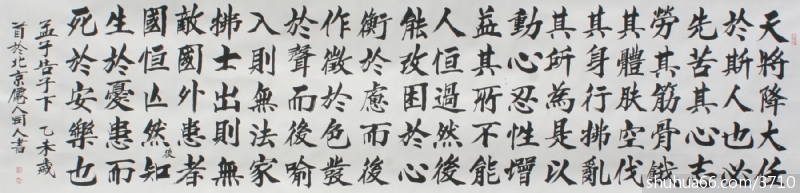 天將降大任
於斯人也必
先苦其心志
勞其筋骨餓
其體膚空伐
其身行拂亂
其所為是以
動心忍性增
益其所不能
人恒過然後
能改困於心
衡於慮而後
作徵於色發
於聲而後喻
入則無法家
拂士出則無
敵國外患者
國恒亡然後知
生於憂患而
死於安樂也
孟子告子下 乙未歲
首於北京 人書
shuhua66.com/3710